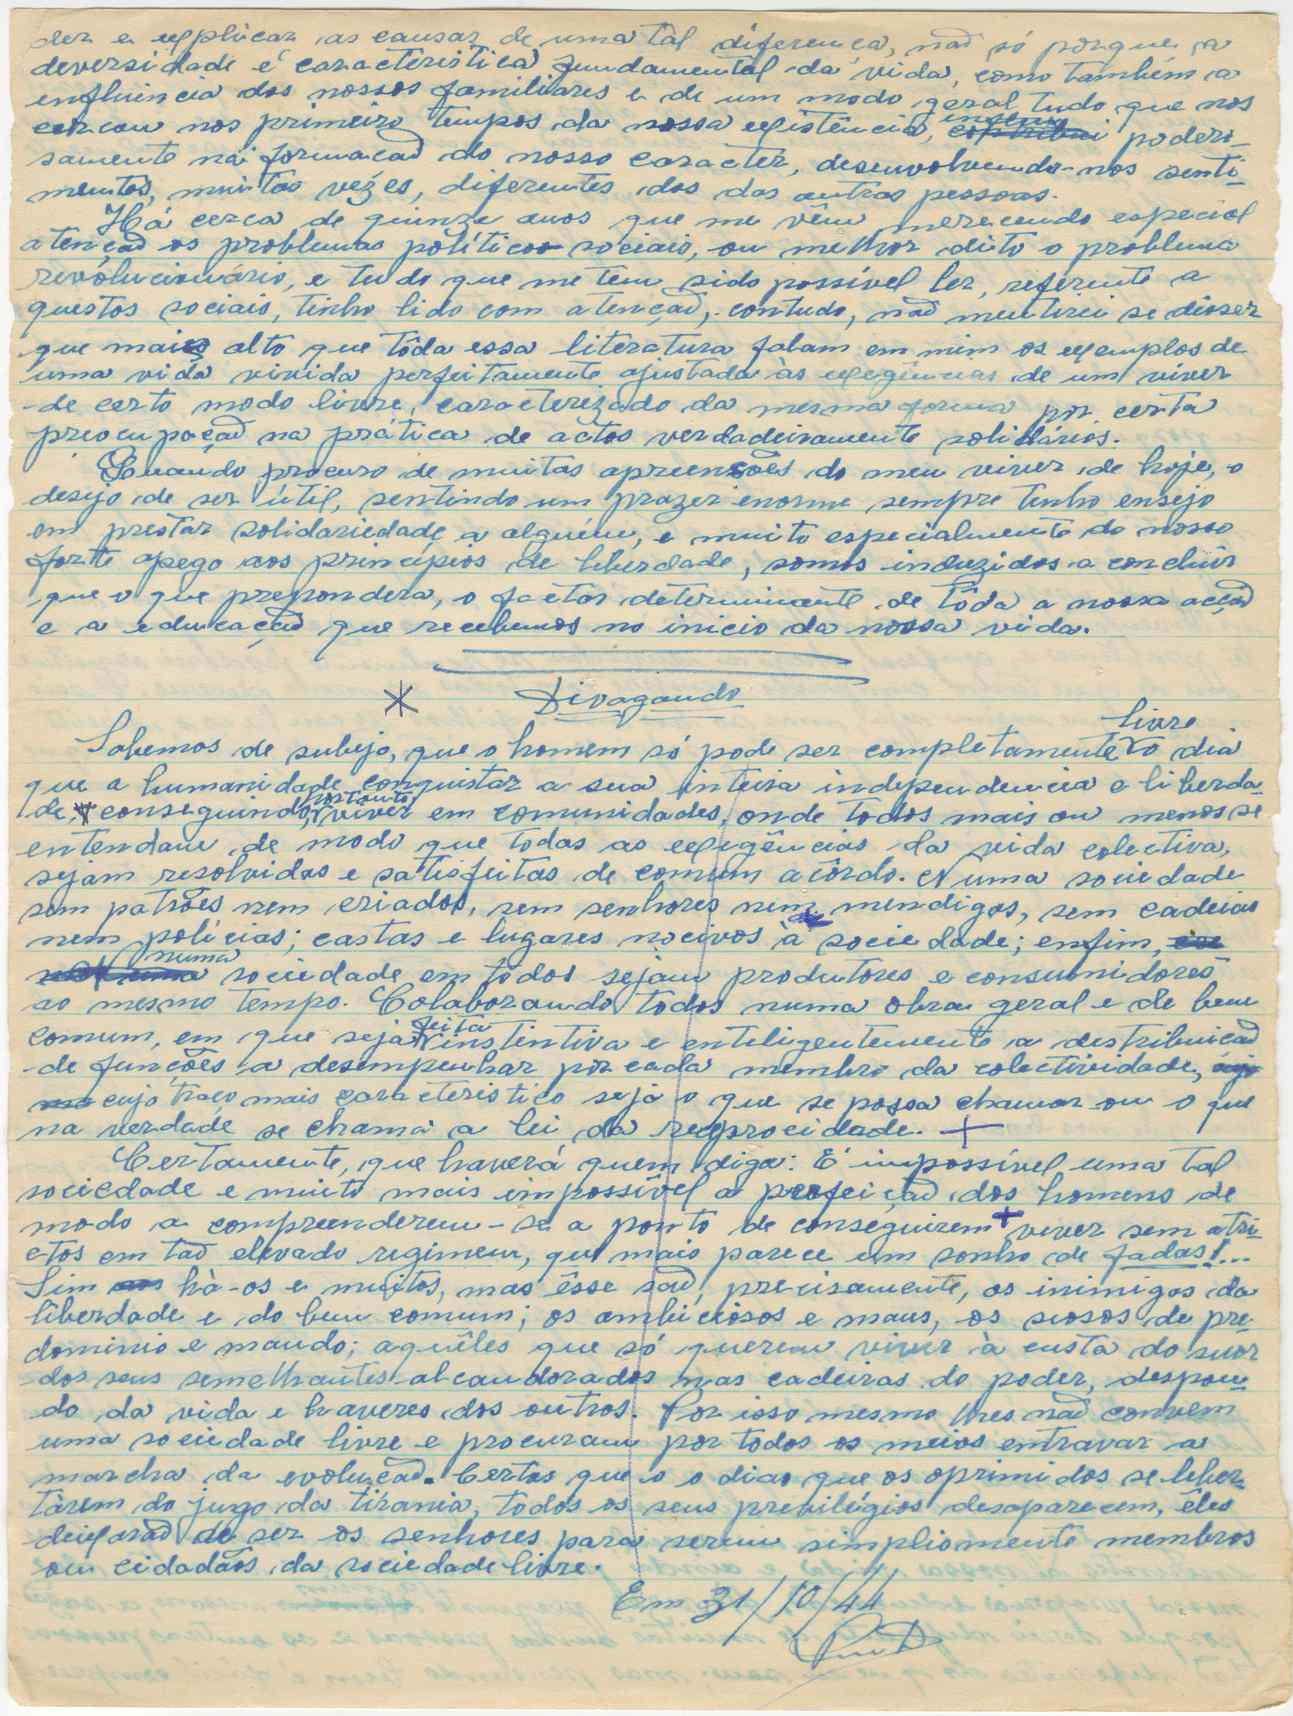 der e esplicar as causas de uma tal diferença, não só porque a
deversidade é característica fundamental da vida, como também a
enfluencia dos nossos familiares e de um modo geral tudo que nos
cercou nos primeiro tempos da nossa esistência, contribui podero-
samente na formação do nosso caracter, desenvolvendo-nos senti-
mentos, muitas vezes, diferentes dos das outras pessoas.
Há cerca de quinze anos que me vêm merecendo especial
atenção os problemas políticos sociais, ou melhor dito o problema
revolucionário, e tudo que me tem sido possível ler, referente a
questos sociais, tenho lido com atenção, contudo, não mentirei se disser
que mais alto que tôda essa literatura falam em mim os exemplos de
uma vida vivida perfeitamente ajustada às exegências de um viver
de certo modo livre, caracterizado da mesma forma por certa
preocupação na prática de actos verdadeiramente solidários.
Quando procuro de muitas apreensões do meu viver de hoje, o
desejo de ser útil, sentindo um prazer enorme sempre tenho ensejo
em prestar solidariedade a alguém, e muito especialmente do nosso
forte apego aos principios de liberdade, somos induzidos a concluir
que o que prepondera, o factor determinante de tôda a nossa acção
e a educação que recebemos no inicio da nossa vida.
Divagando
livre
Sabemos de subejo, que o homem só pode ser completamente o dia
que a humanidade conquistar a sua inteira independencia e liberda-
de, conseguindo, portanto viver em comunidades, onde todos mais ou menos se
entendam de modo que todas as exegências da vida colectiva,
sejam resolvidas e satisfeitas de comum acôrdo. Numa sociedade
sem patrões nem criados, sem senhores nem mendigos, sem cadeias
nem polícias; castas e lugares nocivos à sociedade; enfim,
numa
sociedade em tôdos sejam produtores e consumidores
ao mesmo tempo. Colaborando todos numa obra geral e de bem
comum, em que seja feita instentiva e enteligentemente a destribuição
de funções a desempenhar por cada membro da colectividade,
cujo traço mais caracteristico seja o que se possa chamar ou o que
na verdade se chama a lei da reciprocidade. +
Certamente, que haverá quem diga: É impossível uma tal
sociedade e muito mais impossível a perfeição dos homens de
modo a compreenderem-se a ponto de conseguirem + viver sem atri-
ctos em tão elevado regimem, que mais parece um sonho de fadas!...
Sim há-os e muitos, mas êsse são, precisamente, os inimigos da
liberdade e do bem comum; os ambiciosos e maus, os siosos de pre-
dominio e mando; aquêles que só querem viver à custa do suor
dos seus semelhantes alcandorados nas cadeiras do poder, despon-
do da vida e haveres dos outros. Por isso mesmo lhes não convem
uma sociedade livre e procuram por todos os meios entravar a
marcha da evolução. Certos que o o dia que os oprimidos se liber-
tarem do jugo da tirania, todos os seus previlégios desaparecem, êles
deixarão de ser os senhores para serem simplismente membros
ou cidadãos da sociedade livre.
Em 31/10/44